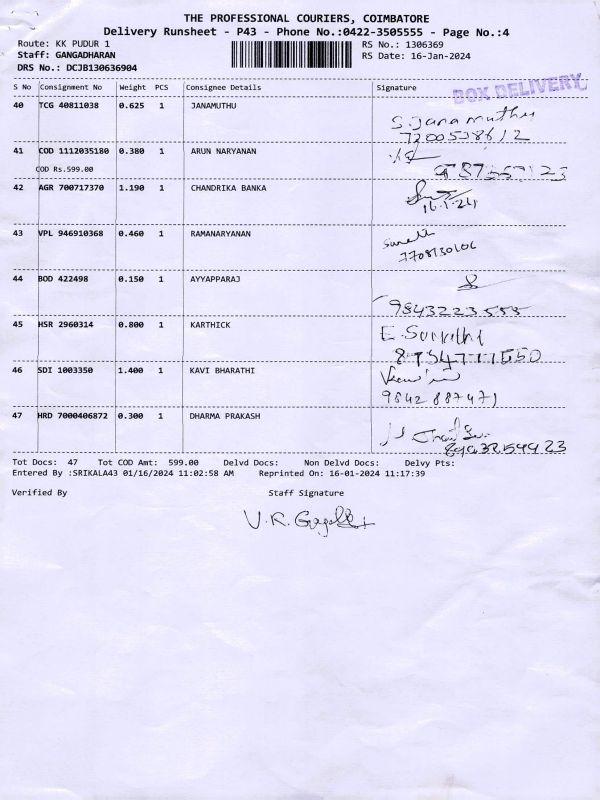 THE PROFESSIONAL COURIERS, COIMBATORE
Delivery Runsheet - P43 - Phone No.:0422-3505555 - Page No.:4
Route: KK PUDUR 1 RS No.: 1306369
Staff: GANGADHARAN RS Date: 16-Jan-2024
DRS No.: DCJB130636904
BOX DELIVERY
S No Consignment No Weight PCS Consignee Details Signature
40 TCG 40811038 0.625 1 JANAMUTHU
S. Janamuthu
7200538612
41 COD 1112035180 0.380 1 ARUN NARYANAN
COD Rs.599.00
42 AGR 700717370 1.190 1 CHANDRIKA BANKA
16.1.24
43 VPL 946910368 0.460 1 RAMANARYANAN
7708130106
44 BOD 422498 0.150 1 AYYAPPARAJ
9843223555
45 HSR 2960314 0.800 1 KARTHICK
46 SDI 1003350 1.400 1 KAVI BHARATHI
9842887471
47 HRD 7000406872 0.300 1 DHARMA PRAKASH
Tot Docs: 47 Tot COD Amt: 599.00 Delvd Docs: Non Delvd Docs: Delvy Pts:
Entered By :SRIKALA43 01/16/2024 11:02:58 AM Reprinted On: 16-01-2024 11:17:39
Verified By Staff Signature